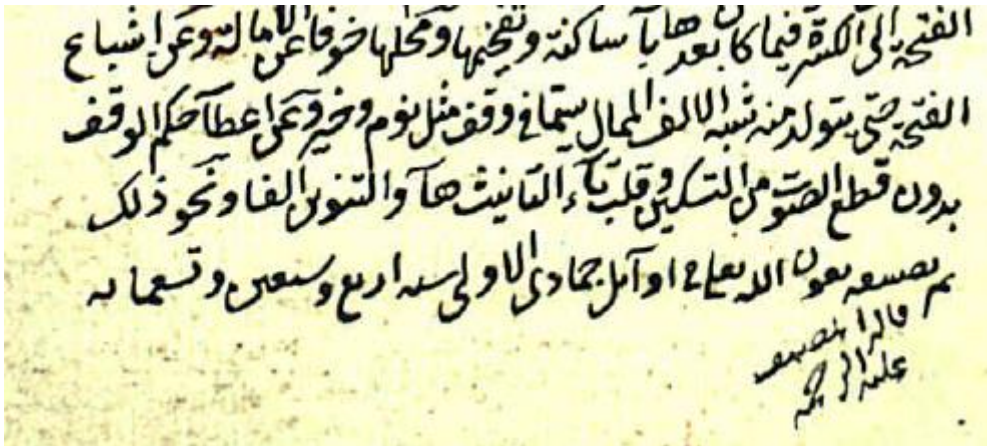 الفتحة الى الكسرة فيما كان بعدها يآ ساكنة وتفخيمها ومحلها خوفا عن الامالة وعن اشباع
الفتحة حتى يتولد منه شبه الالف الممال سيما في وقف مثل يوم وخير وعن اعطآ حكم الوقف
بدون قطع الصوت من التسكين وقلب تآء التانيث هآ والتنوين الفا ونحو ذلك
تم تصنيفه بعون الله تعالى في اوآئل جمادى الاولى سنة اربع وسبعين وتسعمائه
قاله المصنف
عليه الرحمة